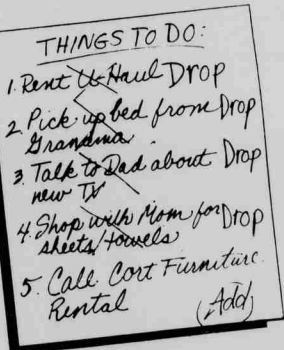 THINGS TO DO:
1. Rent U-Haul Drop
2. Pick up bed from Drop
Grandma
3. Talk to Dad about Drop
new TV
4. Shop with Mom for Drop
sheets/towels
5. Call Cort Furniture
Rental
(Add)